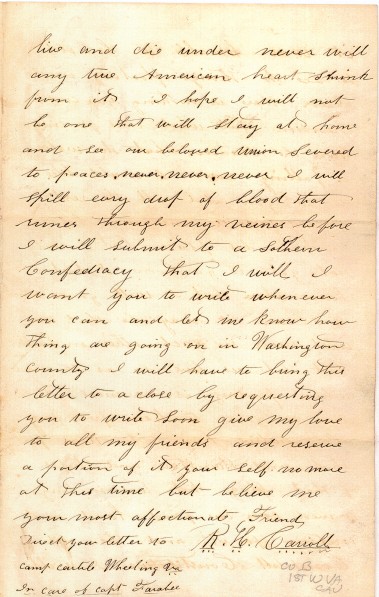 live and die under never will
any true American heart shrink
from it I hope I will not
be one that will stay at home
and see our beloved Union severed
to peaces never. never. never I will
spill evry drop of blood that
runes through my veines before
I will submit to a Sothern
Confediracy that I will I
want you to write whenever
you can and let me know how
thing are going on in Washington
County I will have to bring this
letter to a close by requesting
you to write soon give my love
to all my friends and reserve
a portion of it your self no more
at this time but believe me
your most affectionate Friend
Direct your letter to R. H. Carroll
camp carlile Wheeling Va
In care of capt Farabee
CO B
1ST W VA
CAV